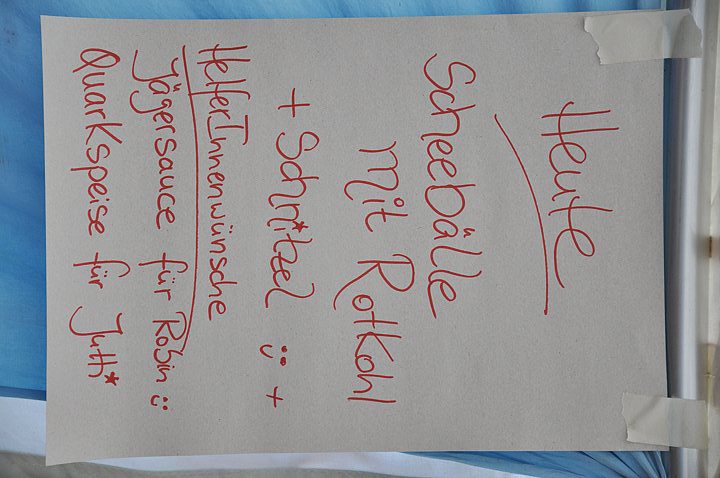 Heute
Scheebälle
mit Rotkohl
+ Schnitzel ü +
HelferInnenwünsche
Jägersauce für Robin ü
Quarkspeise für Jutti*